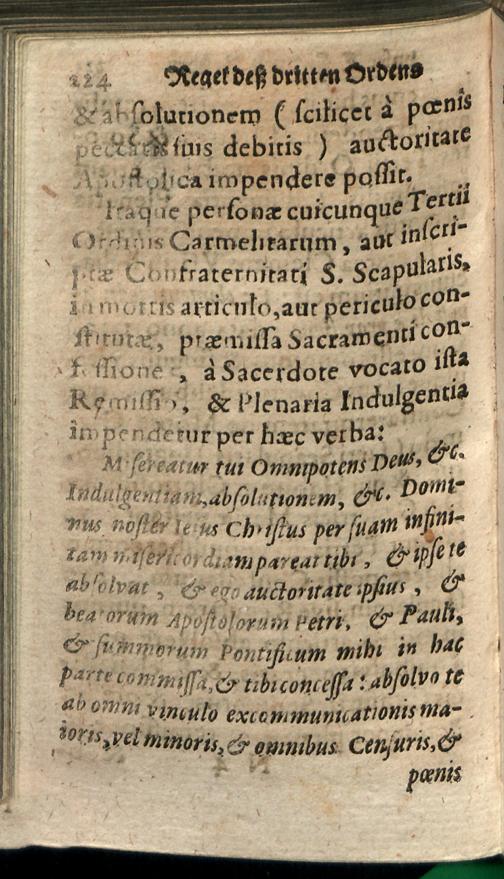 224 Regel deß dritten Ordens
& absolutionem ( scilicet à pœnis
peccatis suis debitis ) auctoritate
Apostolica impendere possit.
Itaque personæ cuicunque Tertii
Ordinis Carmelitarum, aut inscri-
ptæ Confraternitati S. Scapularis,
in mortis articulo, aut periculo con-
stitutæ, præmissa Sacramenti con-
fessione, à Sacerdote vocato ista
Remissio, & Plenaria Indulgentia
impendetur per hæc verba:
Misereatur tui Omnipotens Deus, &c.
Indulgentiam, absolutionem, &c. Domi-
nus noster Iesus Christus per suam infini-
tam misericordiam parcat tibi, & ipse te
absolvat, & ego auctoritate ipsius, &
beatorum Apostolorum Petri, & Pauli,
& summorum Pontificum mihi in hac
parte commissa, & tibi concessa: absolvo te
ab omni vinculo excommunicationis ma-
ioris, vel minoris, & omnibus Censuris, &
pœnis